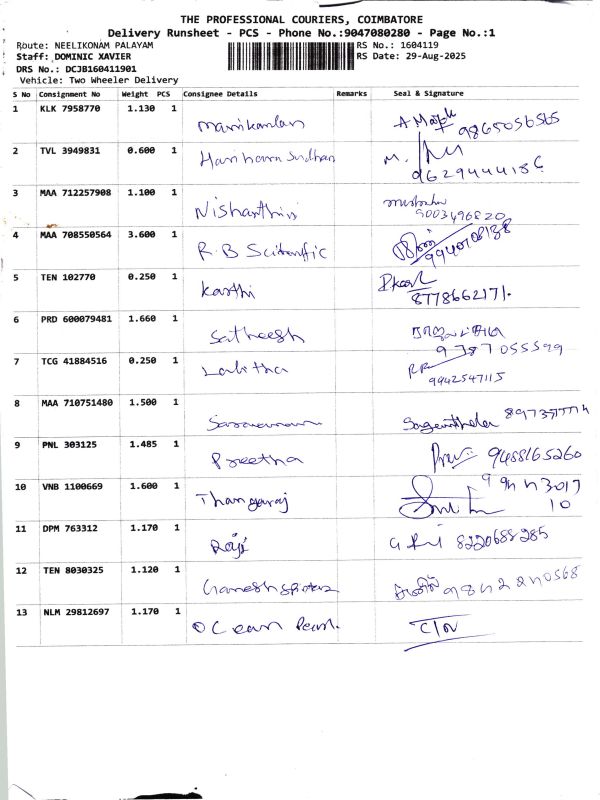 THE PROFESSIONAL COURIERS, COIMBATORE
Delivery Runsheet - PCS - Phone No.:9047080280 - Page No.:1
Route: NEELIKONAM PALAYAM RS No.: 1604119
Staff: DOMINIC XAVIER RS Date: 29-Aug-2025
DRS No.: DCJB160411901
Vehicle: Two Wheeler Delivery
S No Consignment No Weight PCS Consignee Details Remarks Seal & Signature
1 KLK 7958770 1.130 1 Manikandan
9865056565
2 TVL 3949831 0.600 1 Harihara Sudhan
9629444186
3 MAA 712257908 1.100 1 Nishanthini
9003496820
4 MAA 708550564 3.600 1 R.B Scientific
5 TEN 102770 0.250 1 Karthi
8778662171
6 PRD 600079481 1.660 1 Satheesh
9787055599
7 TCG 41884516 0.250 1 Lalitha
9942547115
8 MAA 710751480 1.500 1
9 PNL 303125 1.485 1 Preetha 9488165260
10 VNB 1100669 1.600 1 Thangaraj
11 DPM 763312 1.170 1 Raji 8220688285
12 TEN 8030325 1.120 1 Ganesh
13 NLM 29812697 1.170 1 Ocean Pearl.